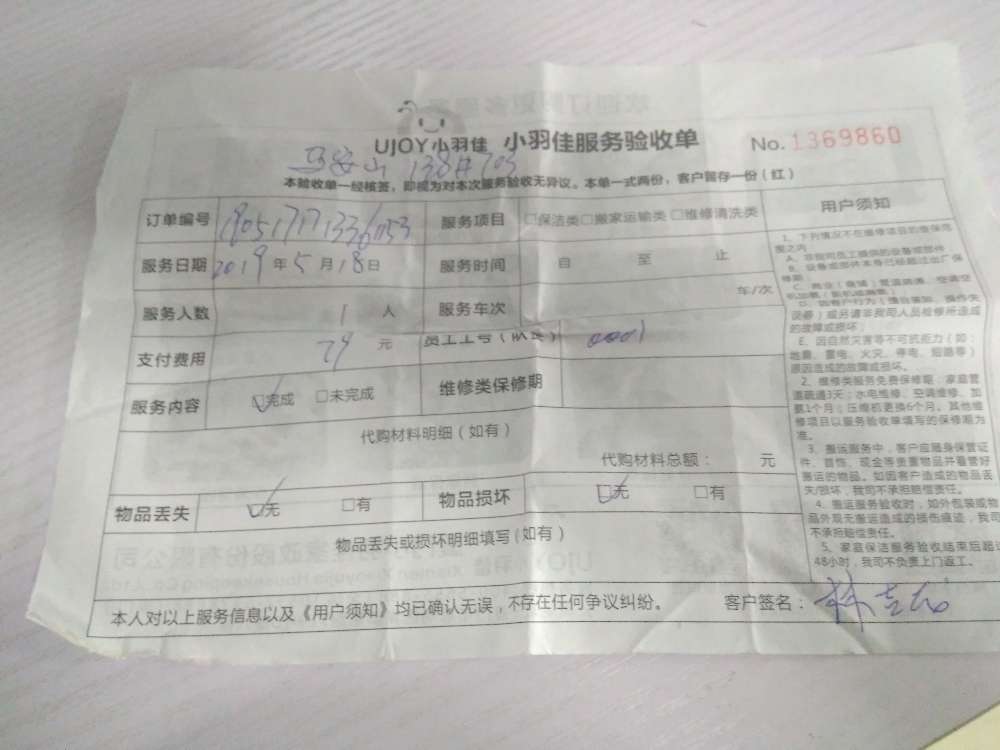 UJOY小羽佳 小羽佳服务验收单 No.1369860
马安山 138#703
本验收单一经核签，即视为对本次服务验收无异议。本单一式两份，客户暂存一份（红）
订单编号 服务项目 □保洁类□搬家运输类□维修清洗类
服务日期 2019年5月18日 服务时间 自 至 止
服务人数 1 人 服务车次 车/次
支付费用 79 元 员工工号（队长） 0001
服务内容 ☑完成 □未完成 维修类保修期
代购材料明细（如有）
代购材料总额： 元
物品丢失 ☑无 □有 物品损坏 ☑无 □有
物品丢失或损坏明细填写（如有）
本人对以上服务信息以及《用户须知》均已确认无误，不存在任何争议纠纷。 客户签名：
用户须知
1、下列情况不在维修项目的保修范
围之内
A、非我司员工提供的设备或部件
B、设备或部件本身已经超过出厂保
修期
误等）或另请非我司人员检修所造成
的故障或损坏；
E、因自然灾害等不可抗拒力（如：
地震、雷电、火灾、停电、短路等）
原因造成的故障或损坏。
2、维修类服务免费保修期：家庭管
道疏通3天；水电维修、空调维修、加
氨1个月；压缩机更换6个月。其他维
修项目以服务验收单填写的保修期为
准。
3、搬运服务中，客户应随身保管证
件、首饰、现金等贵重物品并看管好
搬运的物品。如因客户造成的物品丢
失/损坏，我司不承担赔偿责任。
4、搬运服务验收时，如外包装或物
品外观无搬运造成的损伤痕迹，我司
不承担赔偿责任。
5、家庭保洁服务验收结束后超过
48小时，我司不负责上门返工。